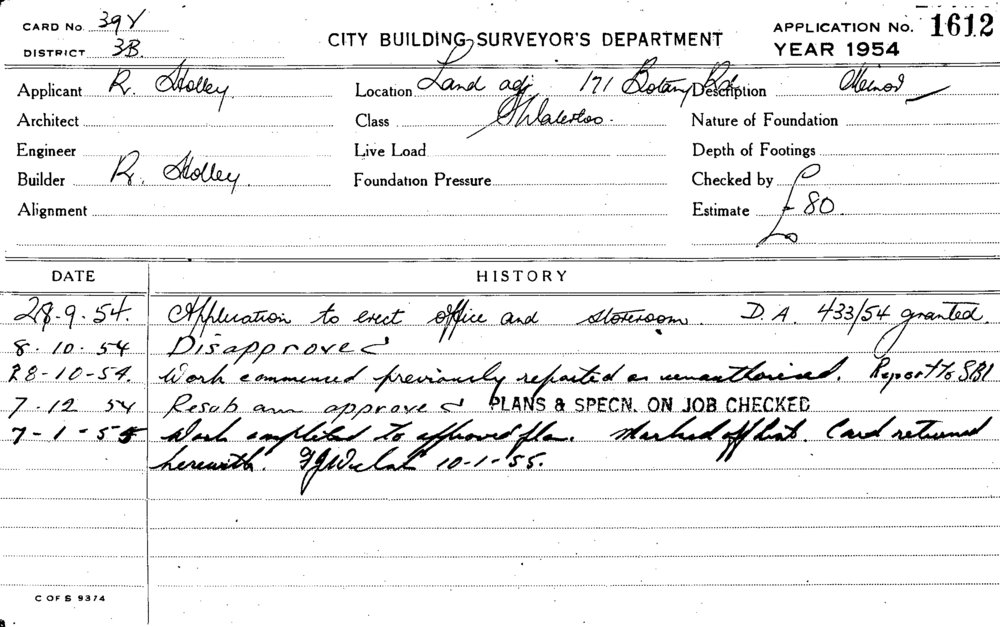 CARD No. 39Y
DISTRICT 3B.
CITY BUILDING SURVEYOR'S DEPARTMENT
APPLICATION No. 1612
YEAR 1954
Applicant R. Holley Location Land adj 171 Botany Rd. Description Minor
Architect Class Waterloo. Nature of Foundation
Engineer Live Load Depth of Footings
Builder R. Holley. Foundation Pressure Checked by
Alignment Estimate £80
DATE HISTORY
28-9-54. Application to erect office and storeroom. D.A. 433/54 granted.
8.10.54 Disapproved
28-10-54. Work commenced previously reported as unauthorised. Report to SBI
7.12 54 Resub ann approved PLANS & SPECN. ON JOB CHECKED
7-1-55 Work completed to approved plan. Marked off list. Card returned
herewith. 10-1-55.
C OF S 9374